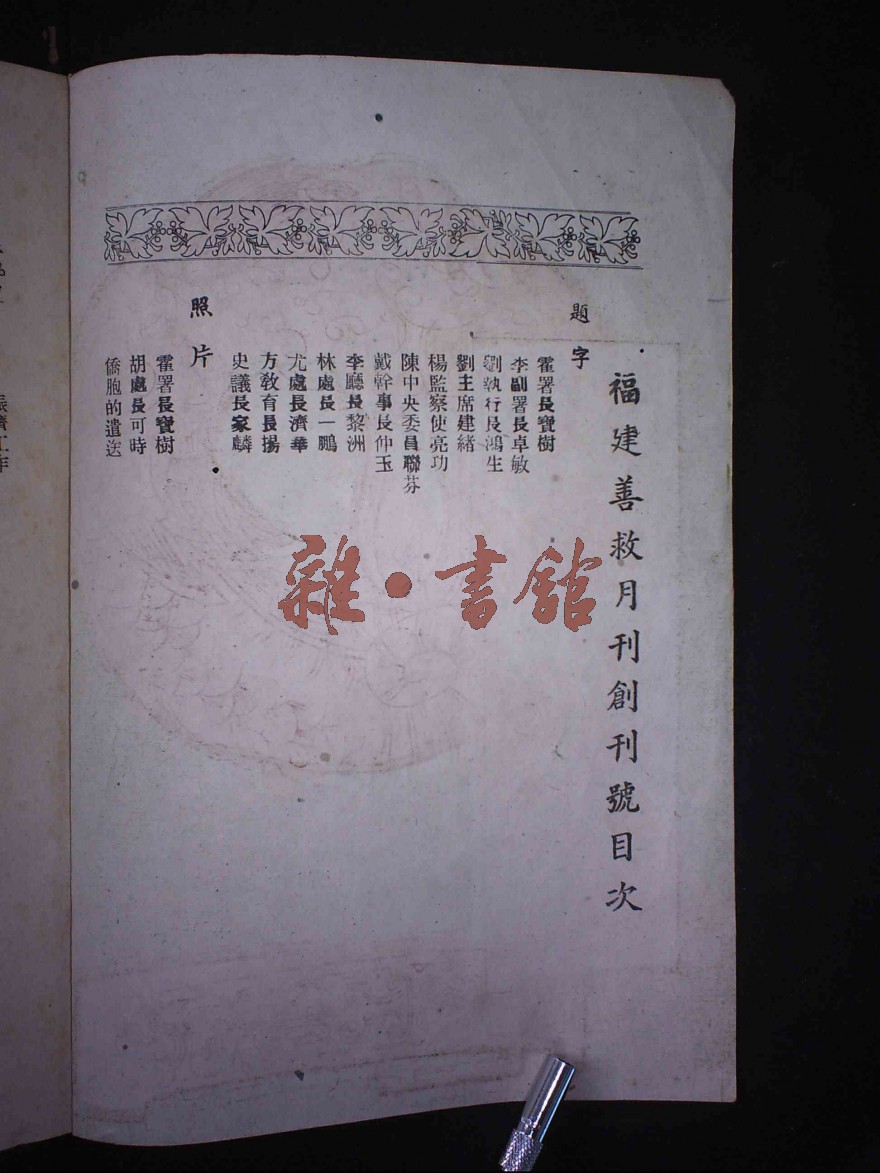 福建善救月刊創刊號目次
題字
霍署長寶樹
李副署長卓敏
劉執行長鴻生
劉主席建緒
楊監察使亮功
陳中央委員聯芬
戴幹事長仲玉
李廳長黎洲
林處長一鵬
尤處長濟華
方教育長揚
史議長家麟
照片
霍署長寶樹
胡處長可時
僑胞的遣送
振濟工作
雜·書館